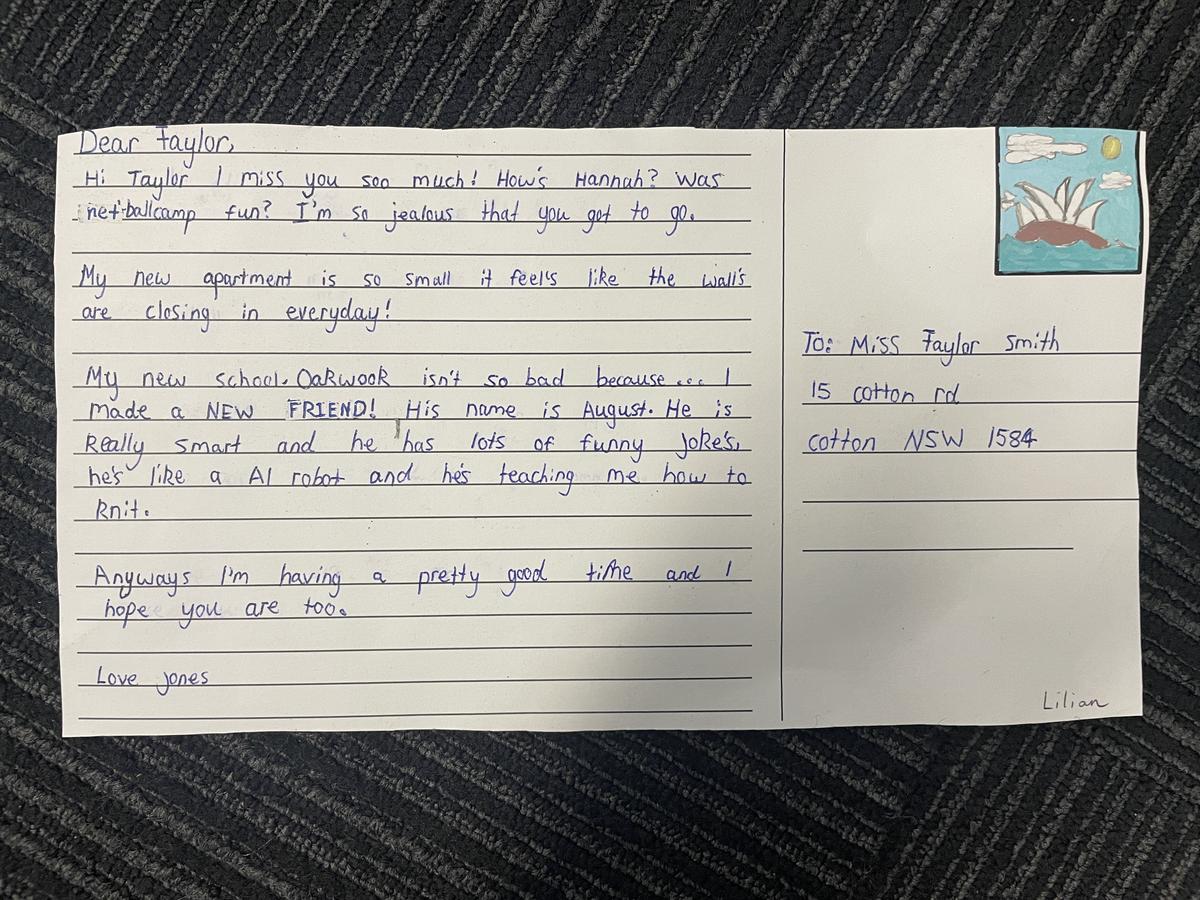 Dear Taylor,
Hi Taylor I miss you soo much! How's Hannah? Was
net-ballcamp fun? I'm so jealous that you got to go.
My new apartment is so small it feel's like the wall's
are closing in everyday!
My new school. Oakwook isn't so bad because... I
made a NEW FRIEND! His name is August. He is
Really smart and he has lots of funny joke's,
he's like a AI robot and he's teaching me how to
knit.
Anyways I'm having a pretty good time and I
hope you are too.
Love jones
To: Miss Taylor Smith
15 cotton rd
cotton NSW 1584
Lilian